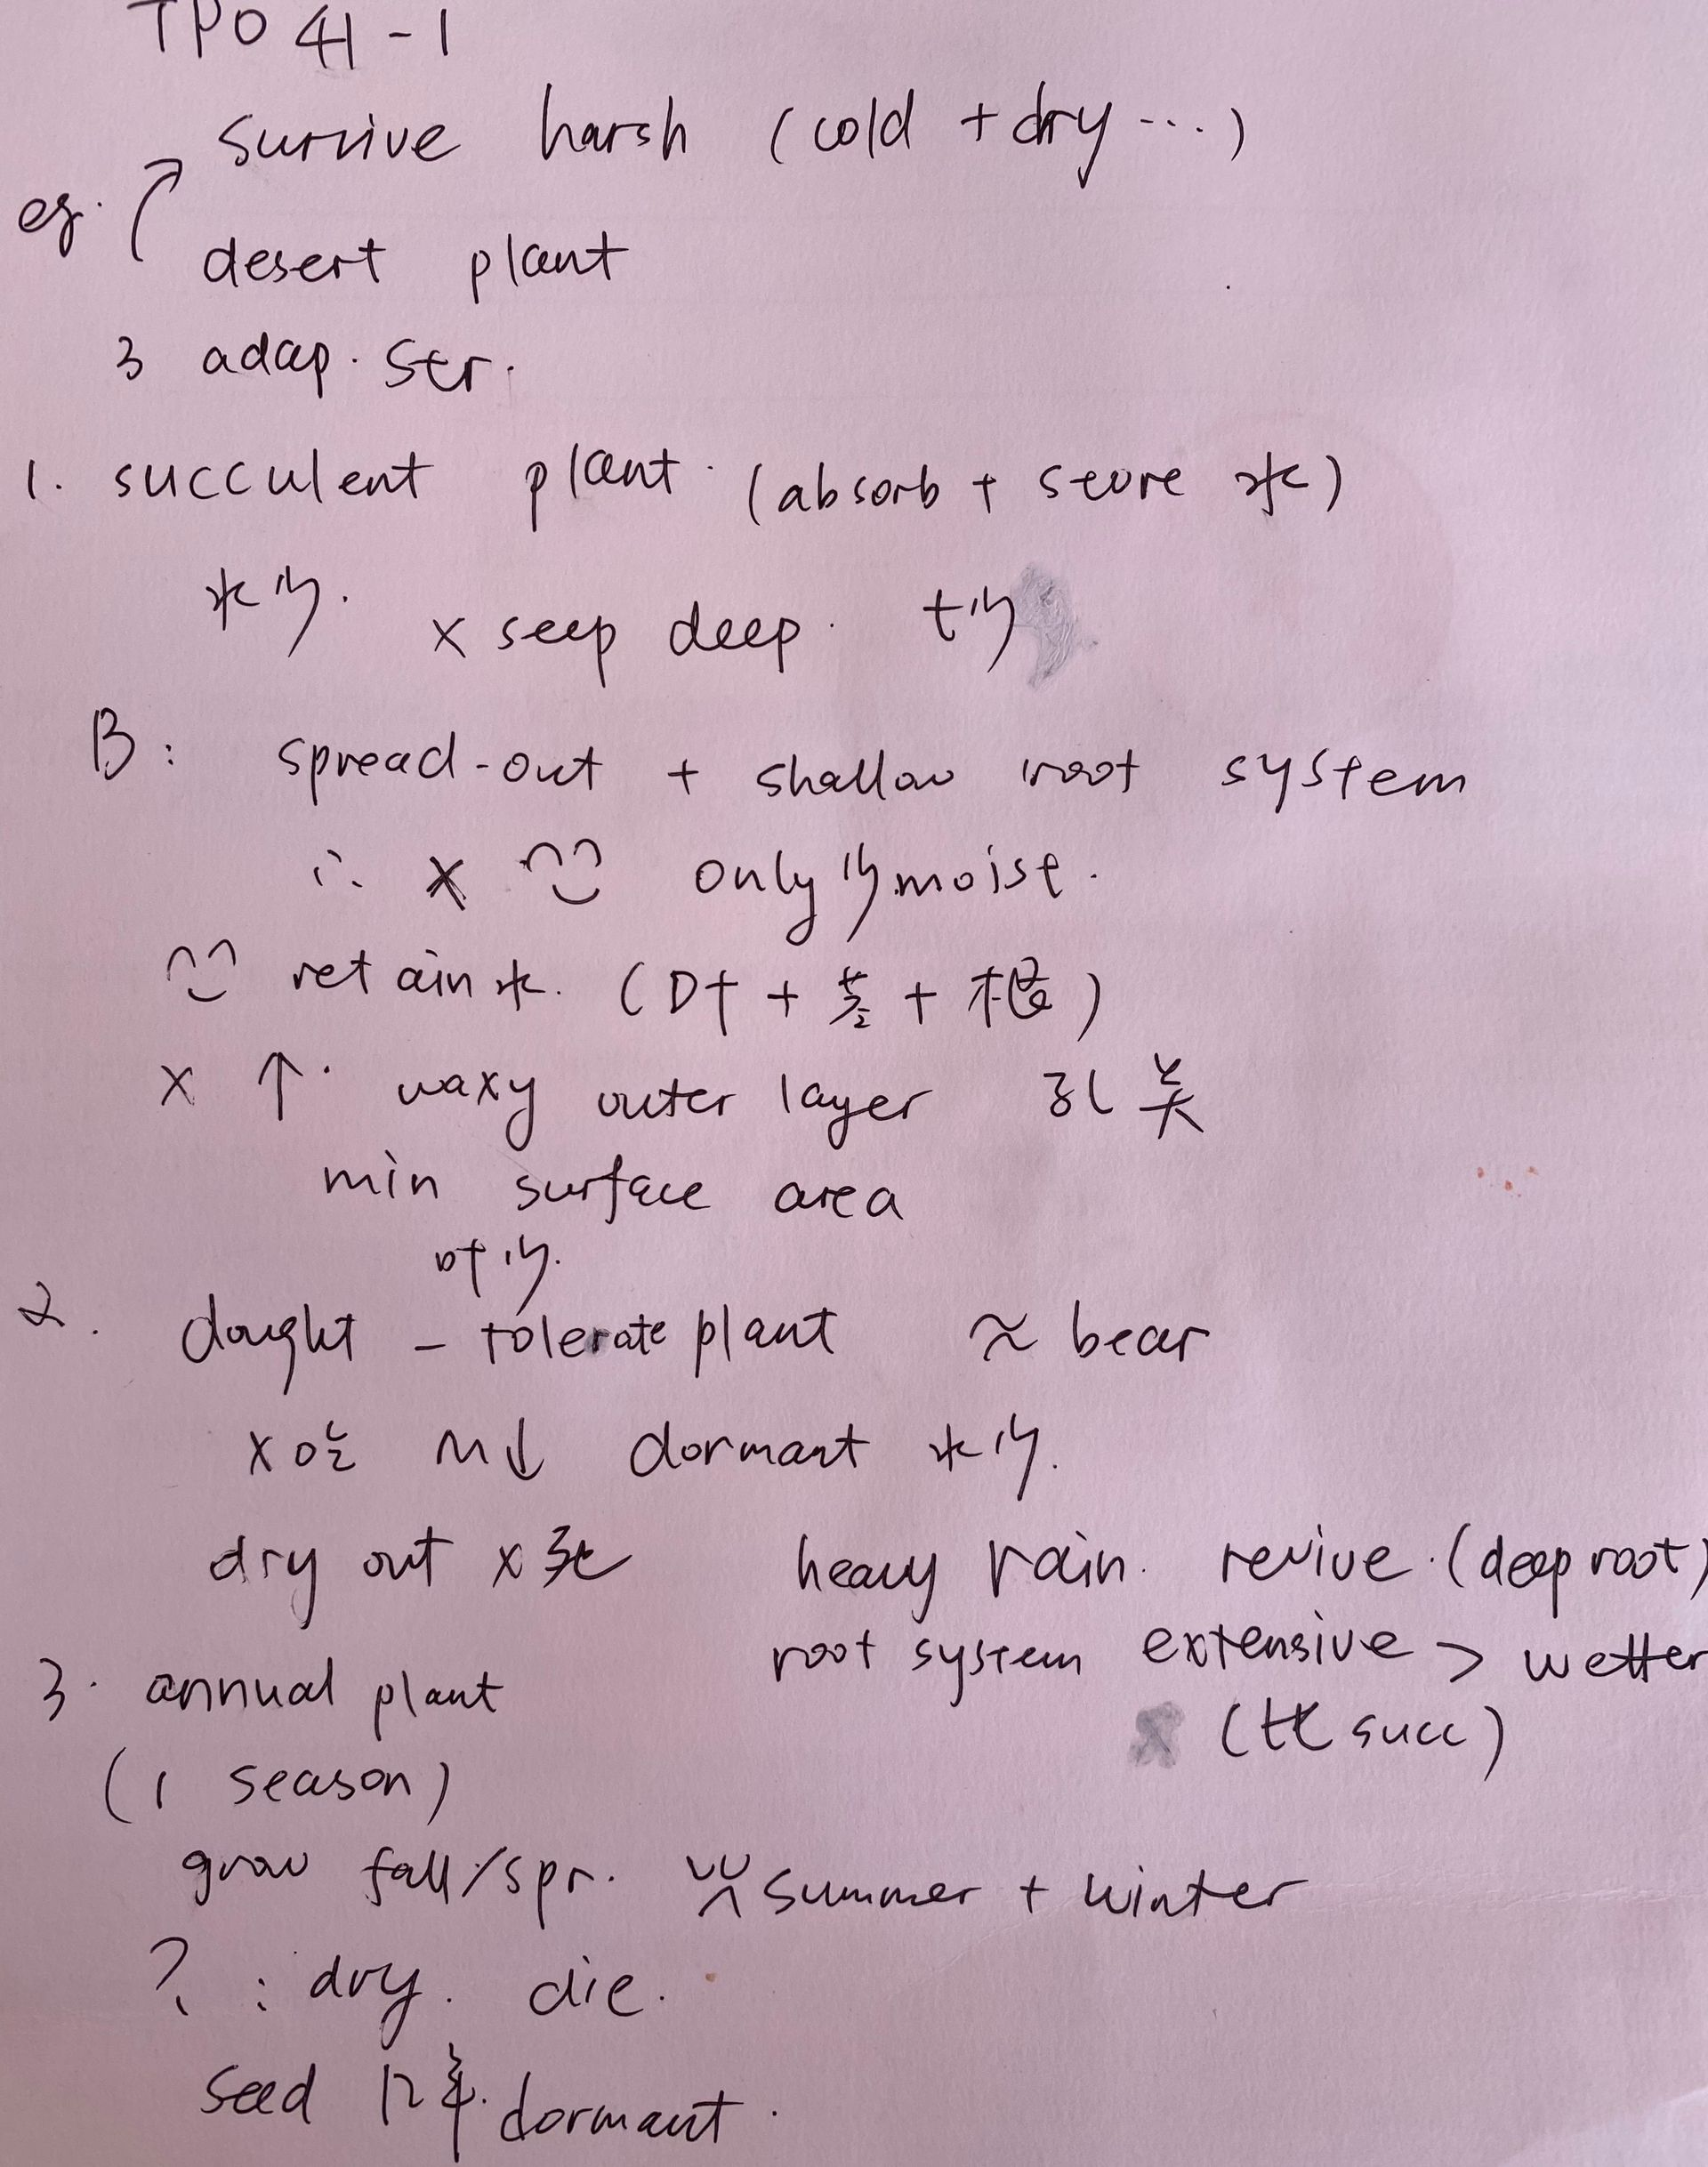 TPO 41-1
survive harsh (cold + dry ...)
eg.
desert plant
3 adap. str.
1. succulent plant. (absorb + store 水)
水少. x seep deep. 十少
B: spread-out + shallow root system
∵ x only 少 moist.
retain 水. (叶 + 茎 + 根)
x ↑. waxy outer layer 孔关
min surface area
叶少.
2. dought - tolerate plant ≈ bear
x 吃 M↓ dormant 水少.
dry out x 死 heavy rain. revive. (deep root)
root system extensive > wetter
3. annual plant
(比 succ)
(1 season)
grow fall/spr. summer + winter
? : dry. die.
seed dormant.